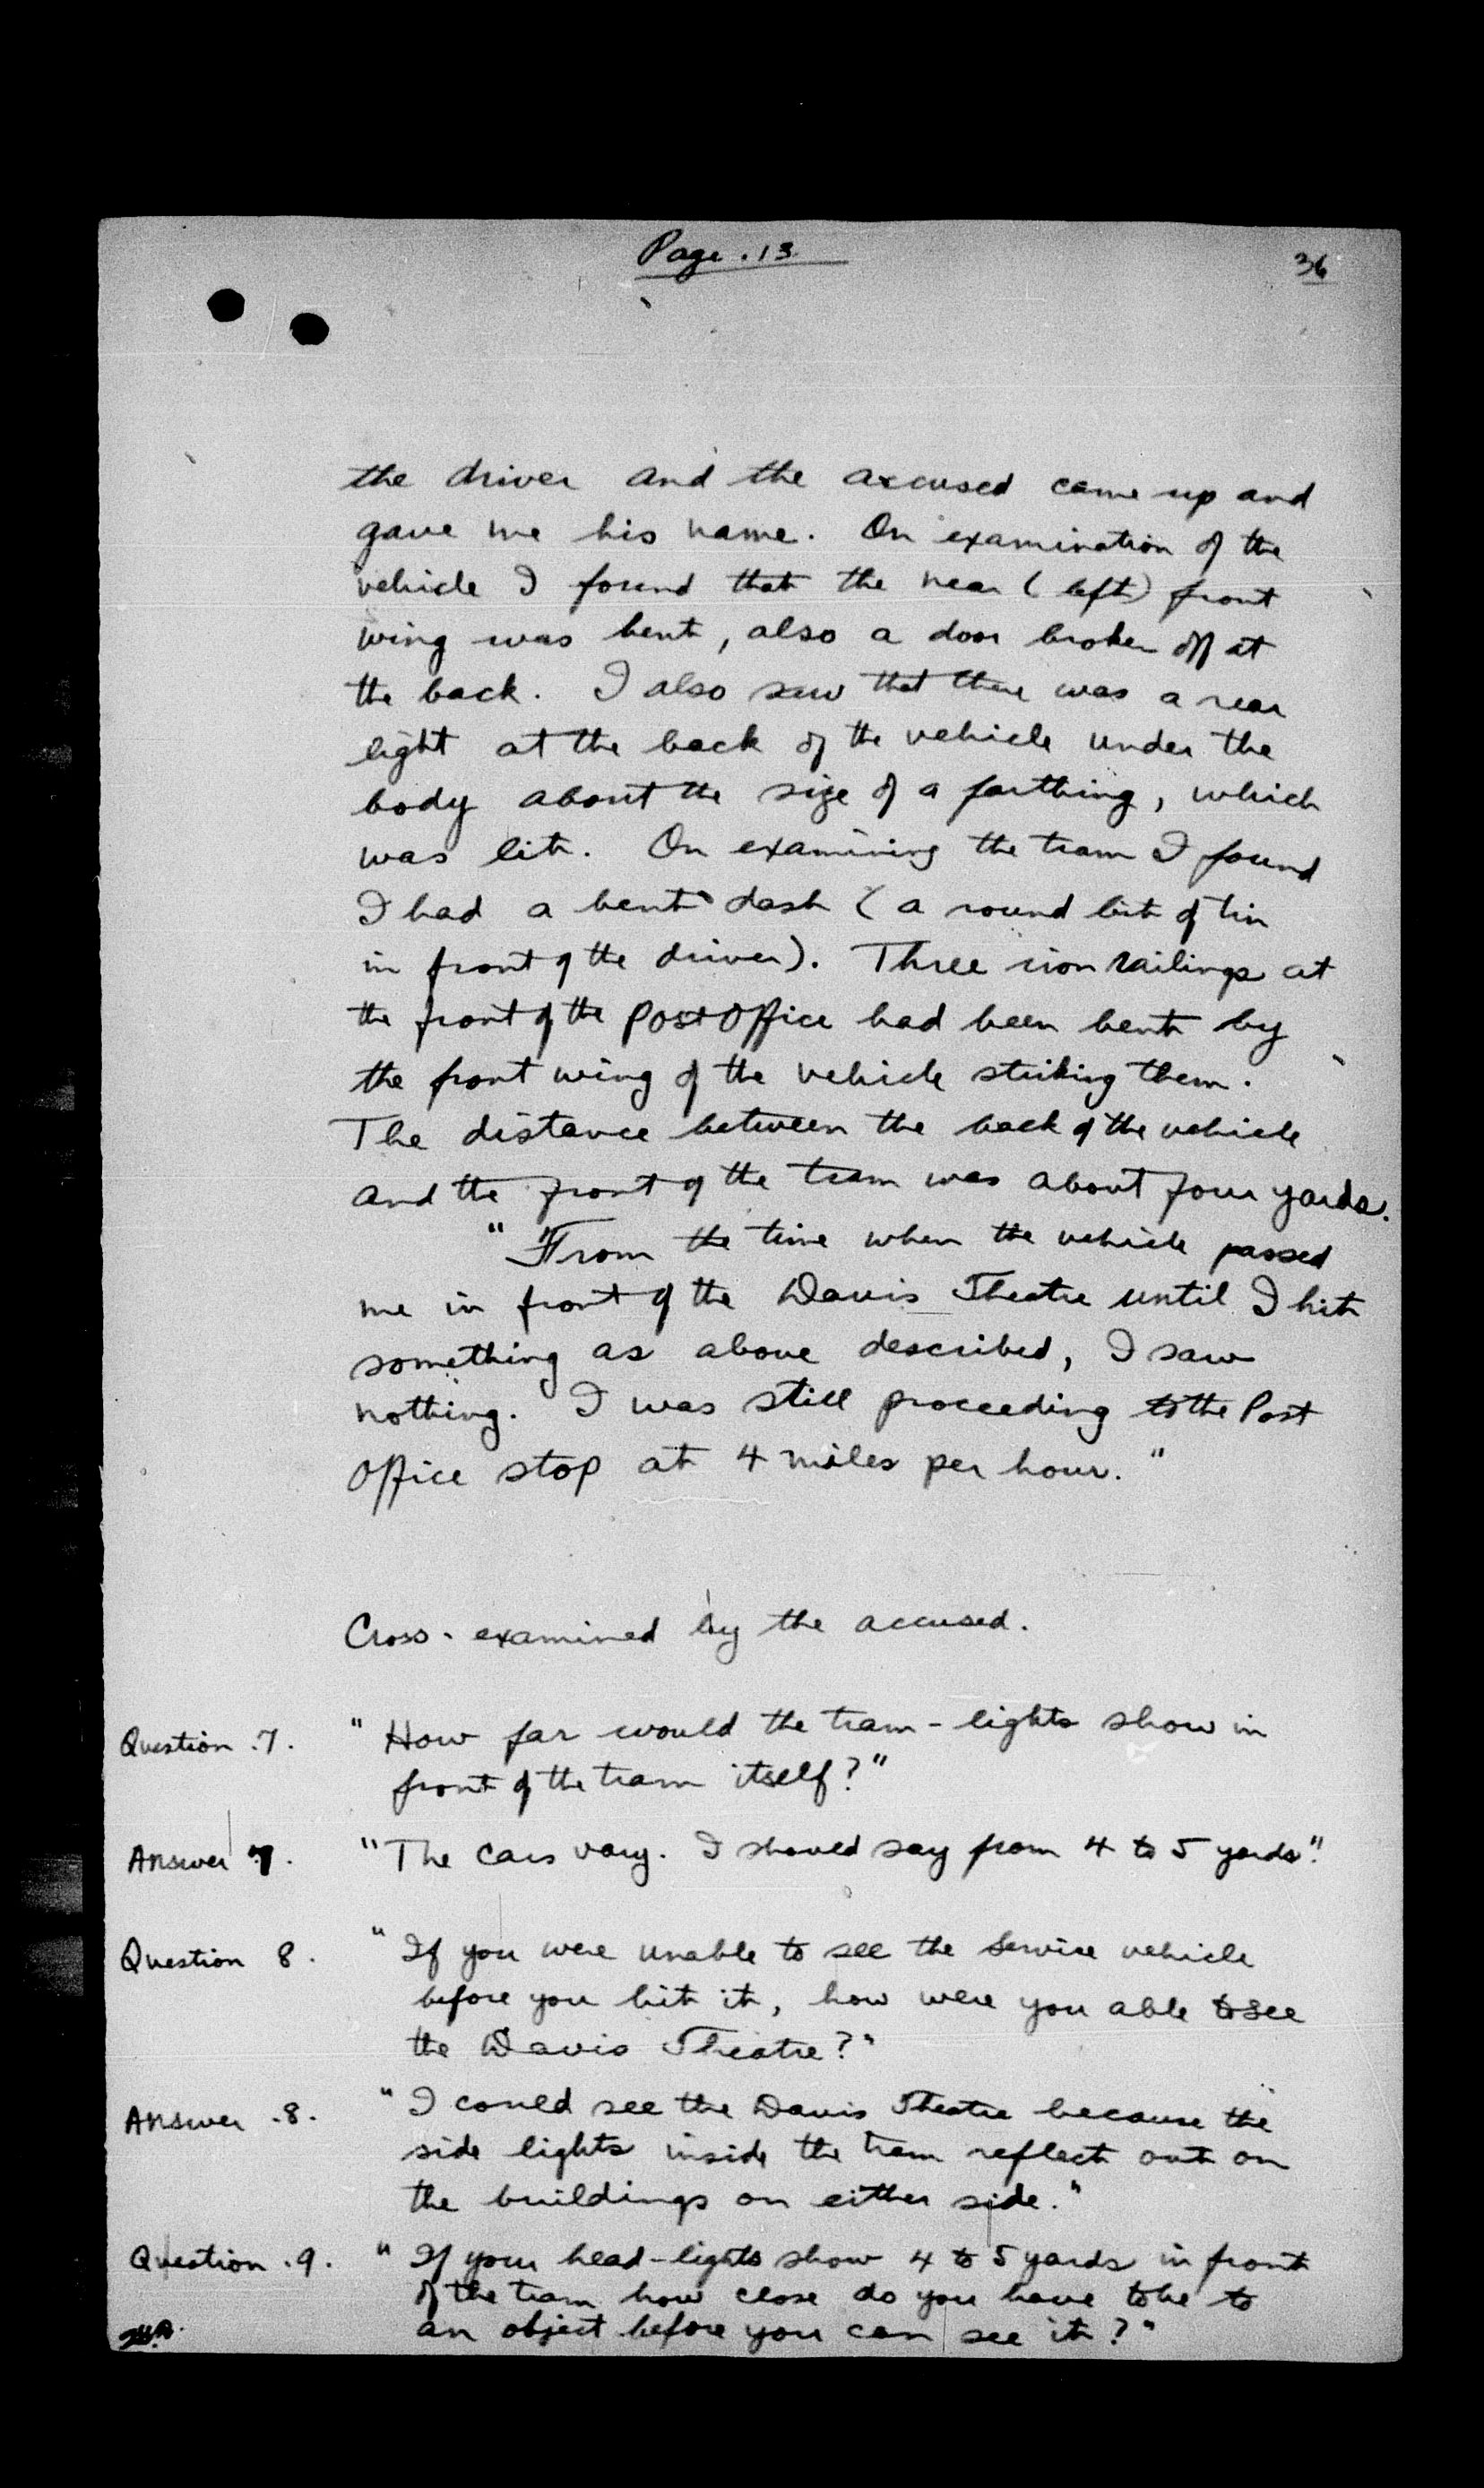 Page .13.
36
the driver and the accused came up and
gave me his name. On examination of the
vehicle I found that the near (left) front
wing was bent, also a door broken off at
the back. I also saw that there was a rear
light at the back of the vehicle under the
body about the size of a farthing, which
was lit. On examining the tram I found
I had a bent dash (a round bit of tin
in front of the driver). Three iron railings at
the front of the Post Office had been bent by
the front wing of the vehicle striking them.
The distance between the back of the vehicle
and the front of the tram was about four yards.
"From the time when the vehicle passed
me in front of the Davis Theatre until I hit
something as above described, I saw
nothing. I was still proceeding to the Post
Office stop at 4 miles per hour."
Cross-examined by the accused.
Question .7. "How far would the tram-lights show in
front of the tram itself?"
Answer 7. "The cars vary. I should say from 4 to 5 yards."
Question 8. "If you were unable to see the Service vehicle
before you hit it, how were you able to see
the Davis Theatre?"
Answer .8. "I could see the Davis Theatre because the
side lights inside the tram reflect out on
the buildings on either side."
Question .9. "If your head-lights show 4 to 5 yards in front
of the tram how close do you have to be to
an object before you can see it?"